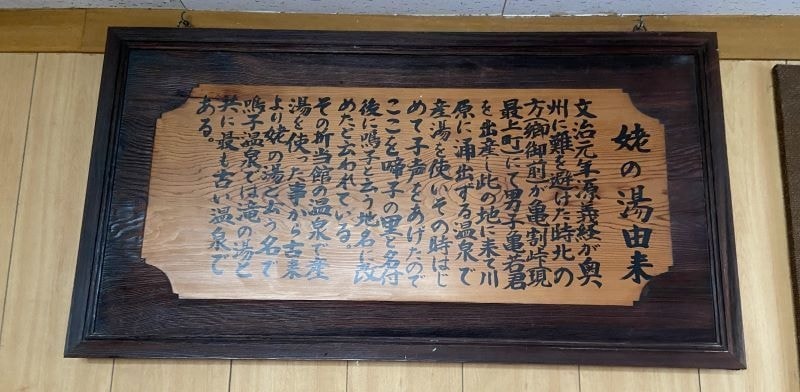 姥の湯由来
文治元年源義経が奥
州に難を避けた時北の
方郷御前が亀割峠現
最上町にて男子亀若君
を出産し此の地に来て川
原に涌出する温泉で
産湯を使いその時はじ
めて子声をあげたので
ここを啼子の里と名付
後に鳴子と云う地名に改
めたと云われている。
その折当館の温泉で産
湯を使った事から古来
より姥の湯と云う名で
鳴子温泉では滝の湯と
共に最も古い温泉で
ある。